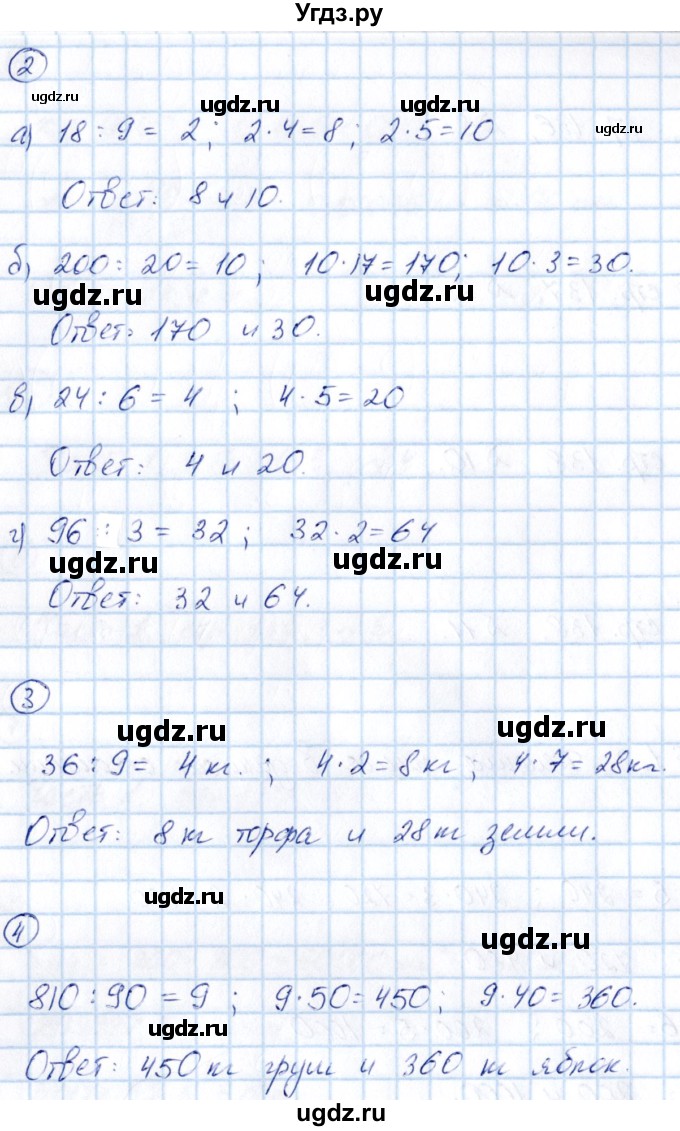 Угдз.ру
2
ugdz.ru ugdz.ru ugdz.ru
а) 18 : 9 = 2 ; 2 · 4 = 8 ; 2 · 5 = 10 ugdz.ru
Ответ: 8 и 10.
б) 200 : 20 = 10 ; 10 · 17 = 170; 10 · 3 = 30.
ugdz.ru ugdz.ru
Ответ: 170 и 30.
в) 24 : 6 = 4 ; 4 · 5 = 20
Ответ: 4 и 20.
г) 96 : 3 = 32 ; 32 · 2 = 64
ugdz.ru ugdz.ru
Ответ: 32 и 64.
3
ugdz.ru ugdz.ru
36 : 9 = 4 кг. ; 4 · 2 = 8 кг ; 4 · 7 = 28 кг.
Ответ: 8 кг торфа и 28 кг земли.
ugdz.ru
4
ugdz.ru
810 : 90 = 9 ; 9 · 50 = 450; 9 · 40 = 360.
ugdz.ru
Ответ: 450 кг груш и 360 кг яблок.
ugdz.ru